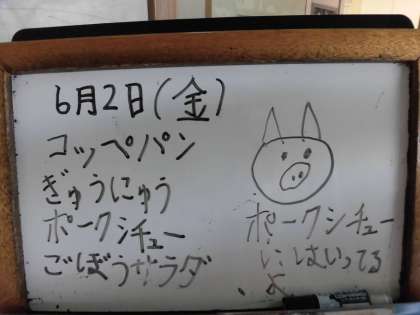 6月2日(金)
コッペパン
ぎゅうにゅう
ポークシチュー
ごぼうサラダ
ポークシチュー
にはいってる
よ